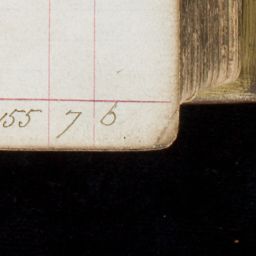 155 7 6